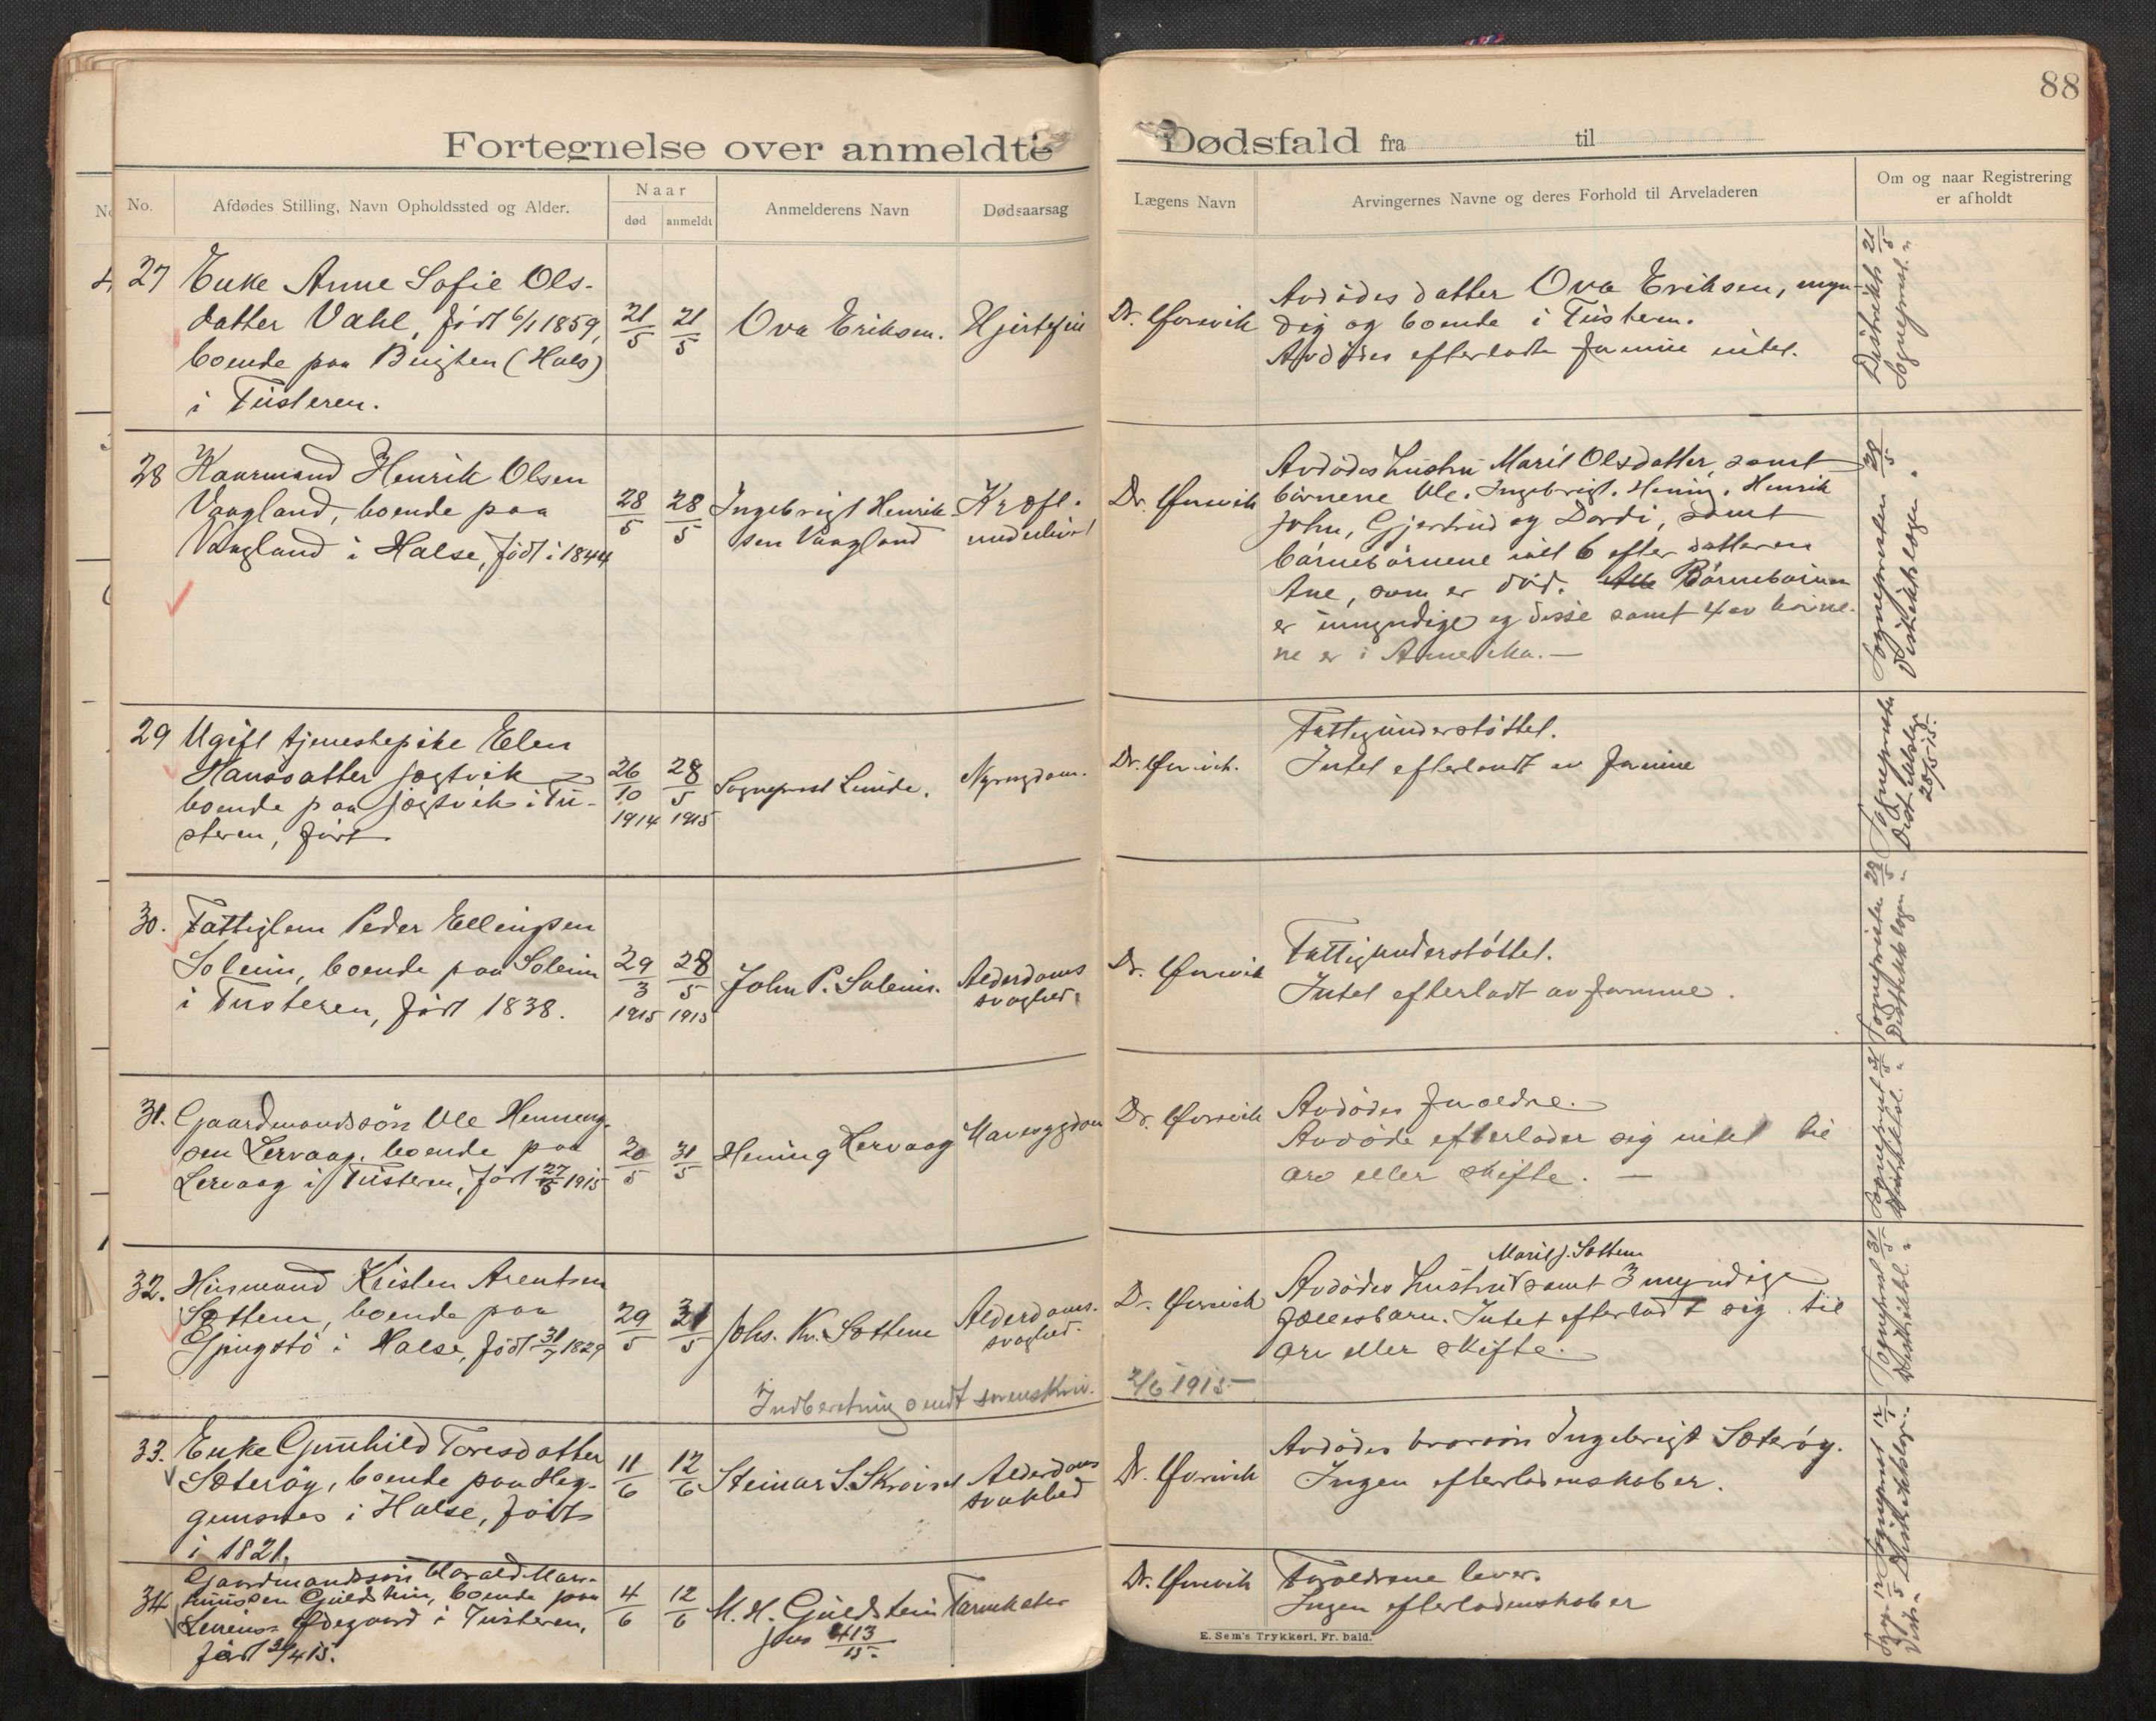 88
Fortegnelse over anmeldte Dødsfald fra til
No.
Afdødes Stilling, Navn Opholdssted og Alder.
Naar
død
anmeldt
Anmelderens Navn
Dødsaarsag
Lægens Navn
Arvingernes Navne og deres Forhold til Arveladeren
Om og naar Registrering
er afholdt
27
Enke Anne Sofie Ols-
datter Vahl, født 6/1 1859,
boende paa (Hals)
i Tusteren.
21/5
21/5
Ova Eriksen.
Dr. Ørsvik
Avdødes datter Ova Eriksen, myn-
dig og boende i Tusteren.
Avdødes efterlodte intet.
Distrikts 21/5
Sogneprest. "
28
Kaarmand Henrik Olsen
Vaagland, boende paa
Vaagland i Halse, født i 1844
28/5
28/5
Ingebrigt Henrik-
sen Vaagland
Kræft.
underlivet
Dr. Ørsvik
Avdødes hustru Marit Olsdatter, samt
børnene Ole, Ingebrigt, Hening, Henrik
John, Gjertrud og Dordi, samt
børnebørnene ialt 6 efter datteren
Ane, som er død. Alle Børnebørnene
er umyndige og disse samt 4 av børne-
ne er i Amerika. —
Sognepresten 28/5
Distriktslægen "
29
Ugift tjenestepike Elen
Hansdatter Jøgtvik
boende paa Jøgtvik i Tu-
steren, født
26/10
1914
28/5
1915
Sogneprest Linde.
Nyresygdom.
Dr. Ørsvik.
Fattigunderstøttet.
Intet efterladt av
Sognepresten
Distriktslæge
28/5 15.
30.
Fattiglem Peder Ellingsen
Soleim, boende paa Soleim
i Tusteren, født 1838.
29/3
1915
28/5
1915
John P. Soleim.
Alderdoms
svaghed.
Dr. Ørsvik
Fattigunderstøttet.
Intet efterladt av
Sognepresten 28/5
Distriktslægen "
31.
Gaardmandssøn Ole Henning-
sen Lervaag, boende paa
Lervaag i Tusteren, født 27/5 1915
30/5
31/5
Hening Lervaag
Mavesygdom
Dr. Ørsvik
Avdødes forældre.
Avdøde efterlader sig intet til
arv eller skifte. —
Sogneprest 31/5
Distriktsl. "
32.
Husmand Kristen Arentsen
Sættem, boende paa
Gjengstø i Halse, født 31/7 1829
29/5
31/5
Johs. Kr. Sættem
Alderdoms.
svaghed.
Dr. Ørsvik
Marit J. Sættem
Avdødes hustru samt 3 myndige
fællesbarn. Intet efterladt sig til
arv eller skifte.
Sogneprest 31/5
Distriktsl. "
Indberetning sendt sorenskriv. 2/6 1915
33.
Enke Gunhild Toresdatter
Sæterøy, boende paa Heg-
gemsnes i Halse, født
i 1821.
11/6
12/6
Steinar S. Skrøvset
Alderdoms
svakhed
Dr. Ørsvik
Avdødes brorsøn Ingebrigt Sæterøy.
Ingen efterladenskaber.
Sogneprest 12/
Distriktslægen. "
34
Gaardmandssøn Harald
Guldstein, boende paa
Ødegaard i Tusteren,
født
4/6
12/6
M. H. Guldstein
413/15.
Tarmkatar
Dr. Ørsvik
Forældrene lever.
Ingen efterladenskaber
E. Sem's Trykkeri, Fr. hald.